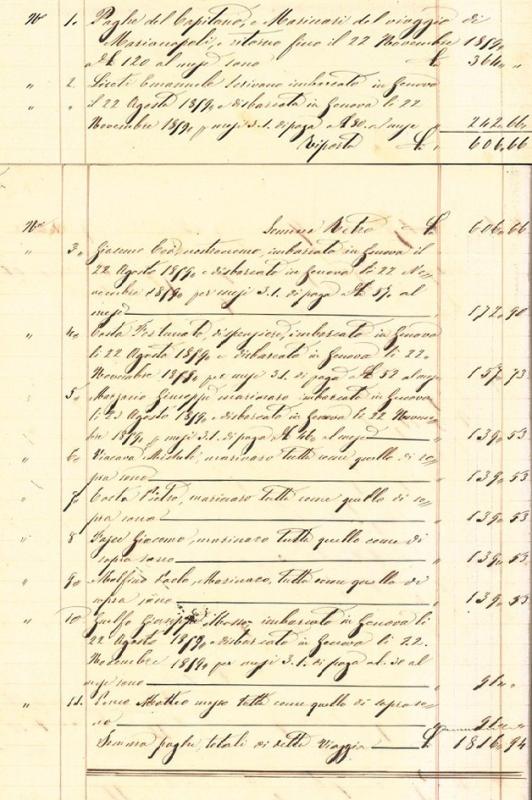 No 1. Paghe del Capitano, e Marinari del viaggio di
Marianopoli, e ritorno fino il 22 Novembre 1879
a £ 120 al mese sono £ 364 "
" 2 Emanuele Scrivano imbarcato in Genova
" " il 22 Agosto 1879, e disbarcato in Genova li 22
Novembre 1879 p mesi 3.1. di paga a £ 80. al mese " 242.66
Riporto £. 606.66
No Somma Retro £. 606.66
" 3. nostromo, imbarcato in Genova il
22 Agosto 1879, e disbarcato in Genova li 22 No=
vembre 1879 per mesi 3.1. di paga £ 57. al
mese " 172.90
" 4. Costa Fortunato, dispensiere, imbarcato in Genova
li 22 Agosto 1879, e disbarcato in Genova li 22.
Novembre per mesi 3.1. di paga a £ 52 al mese " 157.73
" 5. Giuseppe marinaro imbarcato in Genova
li 22 Agosto 1879. e disbarcato in Genova li 22 Novem=
bre 1879 p mesi 3.1. di paga £ 46. al mese " 139.53
" 6. Viacava marinaro tutto come quello di so=
pra sono " 139.53
" 7. Costa Pietro, marinaro tutto come quello di so=
pra sono " 139.53
" 8 Giacomo, marinaro tutto quello come di
sopra sono " 139.53
" 9. Paolo, Marinaro, tutto come quello di
sopra sono " 139.53
" 10. Giuseppe Mosso imbarcato in Genova li
22 Agosto 1879. e disbarcato in Genova li 22.
Novembre 1879 per mesi 3.1. di paga a £. 30 al
mese sono " 91 "
" 11. Matteo mosso tutto come quello di sopra so=
no " 91 "
Somma paghe, totali di detto Viaggio £. 1816.94